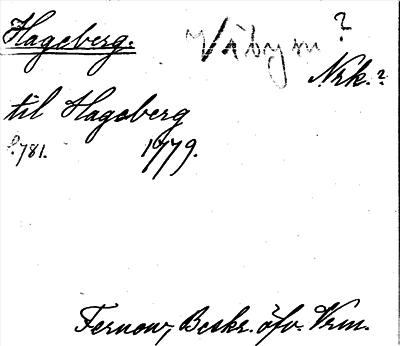 Hageberg. Visym ?
Nrk. ?
til Hageberg
s. 781. 1779.
Fernow, Beskr. öfv. Vrm.